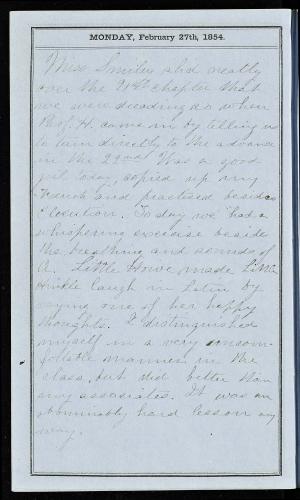 MONDAY, February 27th, 1854.
Miss Smiley slid neatly
over the 21st chapter that
we were dreading so when
Prof. H. came in by telling us
to turn directly to the advance
in the 22nd. Was a good
girl today, copied up my
French and practised besides
Elocution. To day we had a
whispering exercise beside
the breathing and sounds of
A. Little Howe made Little
Hinkle laugh in Latin by
saying one of her happy
thoughts. I distinguished
myself in a very uncom-
fortable manner in the
class, but did better than
my associates. It was an
abominably hard lesson any
way.